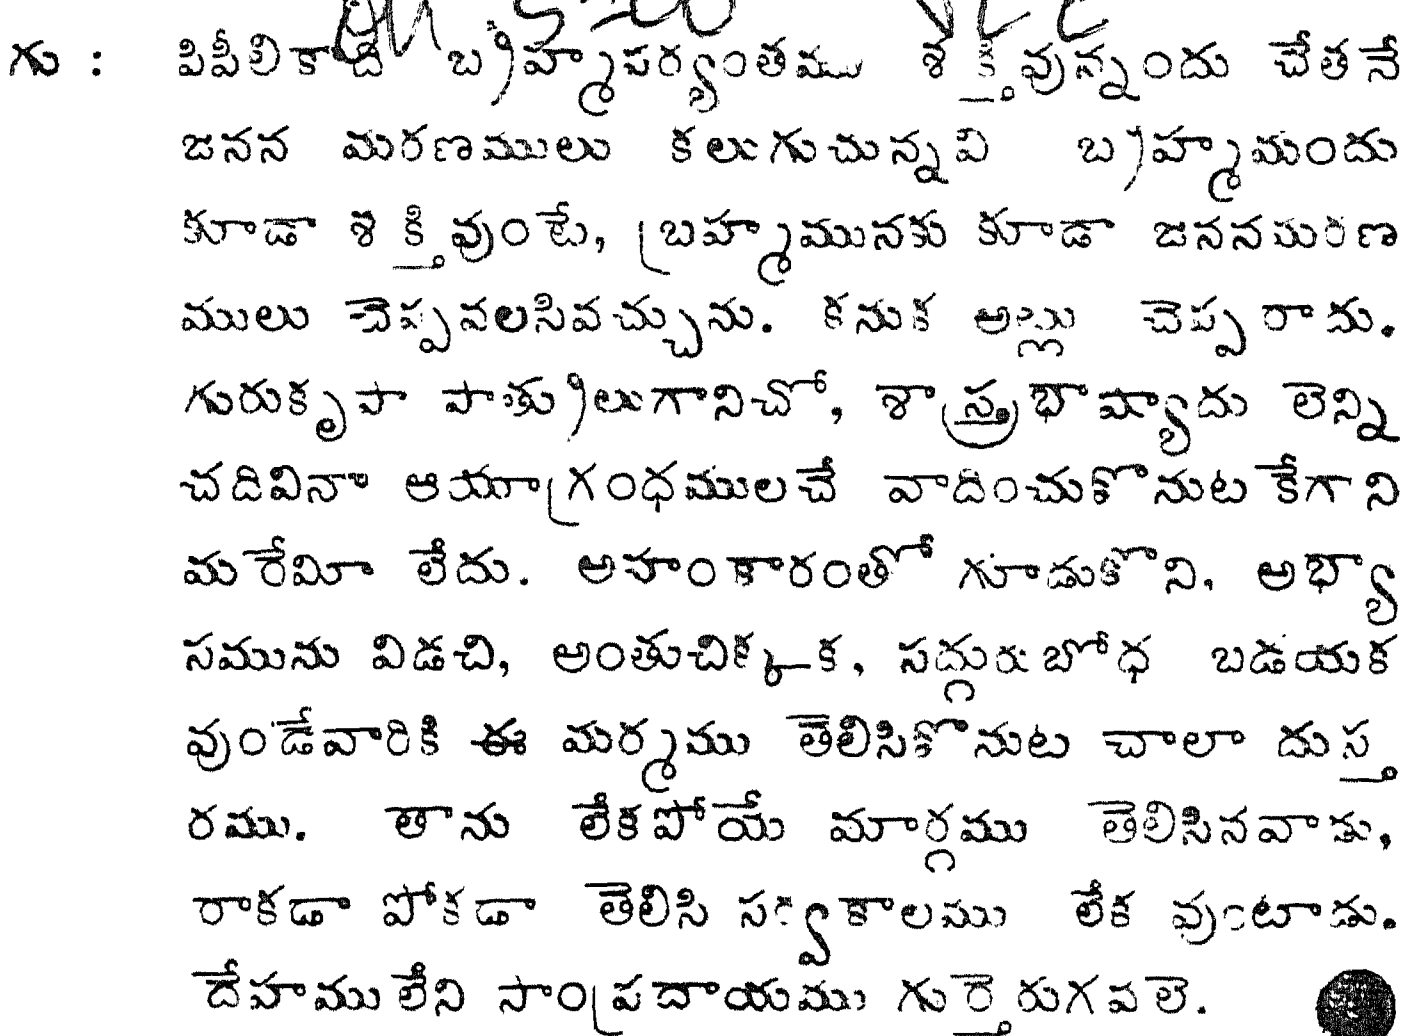 గు : పిపీలికాది బ్రహ్మపర్యంతము శక్తివున్నందు చేతనే
జనన మరణములు కలుగుచున్నవి బ్రహ్మమందు
కూడా శక్తివుంటే, బ్రహ్మమునకు కూడా జననమరణ
ములు చెప్పవలసివచ్చును. కనుక అట్లు చెప్పరాదు.
గురుకృపా పాత్రులుగానిచో, శాస్త్రభాష్యాదు లెన్ని
చదివినా ఆయాగ్రంధములచే వాదించుకొనుటకేగాని
మరేమీ లేదు. అహంకారంతో గూడుకొని, అభ్యా
సమును విడచి, అంతుచిక్కక, సద్గురుబోధ బడయక
వుండేవారికి ఈ మర్మము తెలిసికొనుట చాలా దుస్త
రము. తాను లేకపోయే మార్గము తెలిసినవాడు,
రాకడా పోకడా తెలిసి సర్వకాలము లేక వుంటాడు.
దేహములేని సాంప్రదాయము గుర్తెరుగవలె.